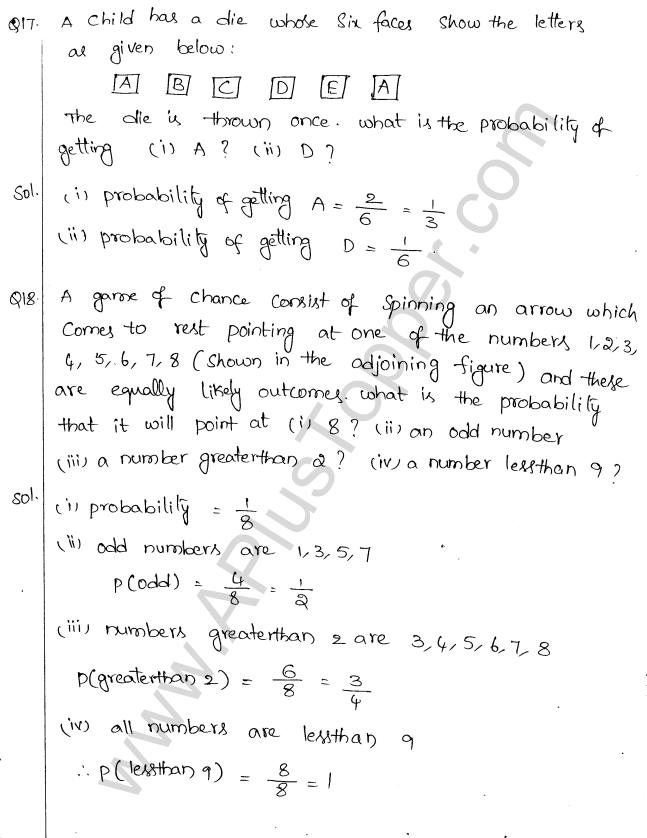 Q17. A child has a die whose six faces show the letters
as given below:
A B C D E A
The die is thrown once. what is the probability of
getting (i) A? (ii) D?
Sol. (i) probability of getting A = 2/6 = 1/3
(ii) probability of getting D = 1/6.
Q18. A game of chance consist of spinning an arrow which
comes to rest pointing at one of the numbers 1,2,3,
4, 5, 6, 7, 8 (shown in the adjoining figure) and these
are equally likely outcomes. what is the probability
that it will point at (i) 8? (ii) an odd number
(iii) a number greaterthan 2? (iv) a number lessthan 9?
Sol. (i) probability = 1/8
(ii) odd numbers are 1,3,5,7
P(odd) = 4/8 = 1/2
(iii) numbers greaterthan 2 are 3,4,5,6,7,8
P(greaterthan 2) = 6/8 = 3/4
(iv) all numbers are lessthan 9
∴ P(lessthan 9) = 8/8 = 1
www.APlusTopper.com